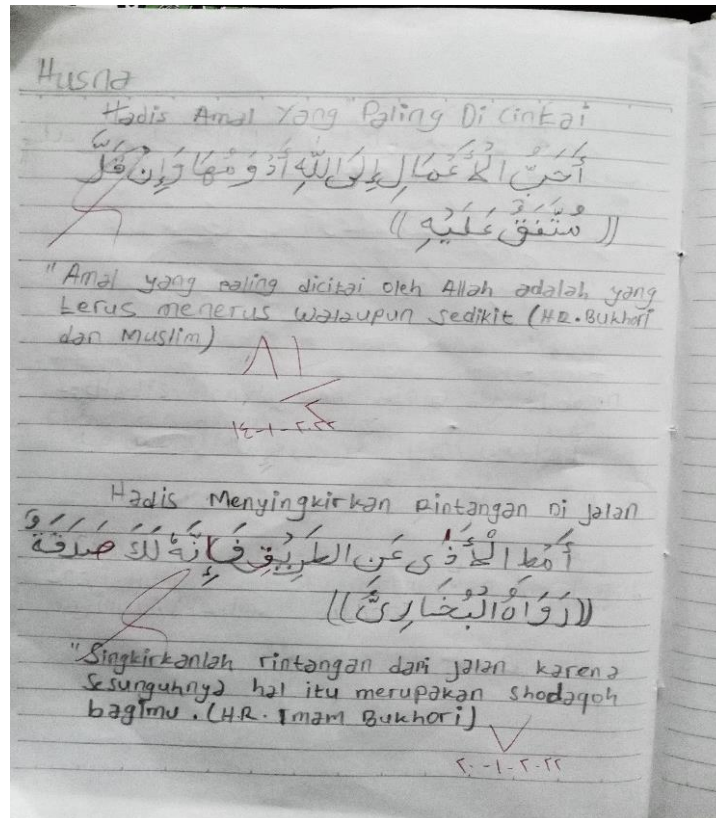 Husna
Hadis Amal Yang Paling Di cintai
أَحَبُّ الْأَعْمَالِ إِلَى اللّٰهِ أَدْوَمُهَا وَإِنْ قَلَّ
(( مُتَّفَقٌ عَلَيْهِ ))
"Amal yang paling dicitai oleh Allah adalah yang
terus menerus walaupun sedikit (HR. Bukhori
dan Muslim)
٨١
١٤-١-٢٠٢٢
Hadis Menyingkirkan Rintangan Di jalan
أَمِطِ الْأَذَى عَنِ الطَّرِيْقِ فَإِنَّهُ لَكَ صَدَقَةٌ
((رَوَاهُ الْبُخَارِيُّ))
"Singkirkanlah rintangan dari jalan karena
Sesunguhnya hal itu merupakan shodaqoh
bagimu. (H.R. Imam Bukhori)
٢٠-١-٢٠٢٢